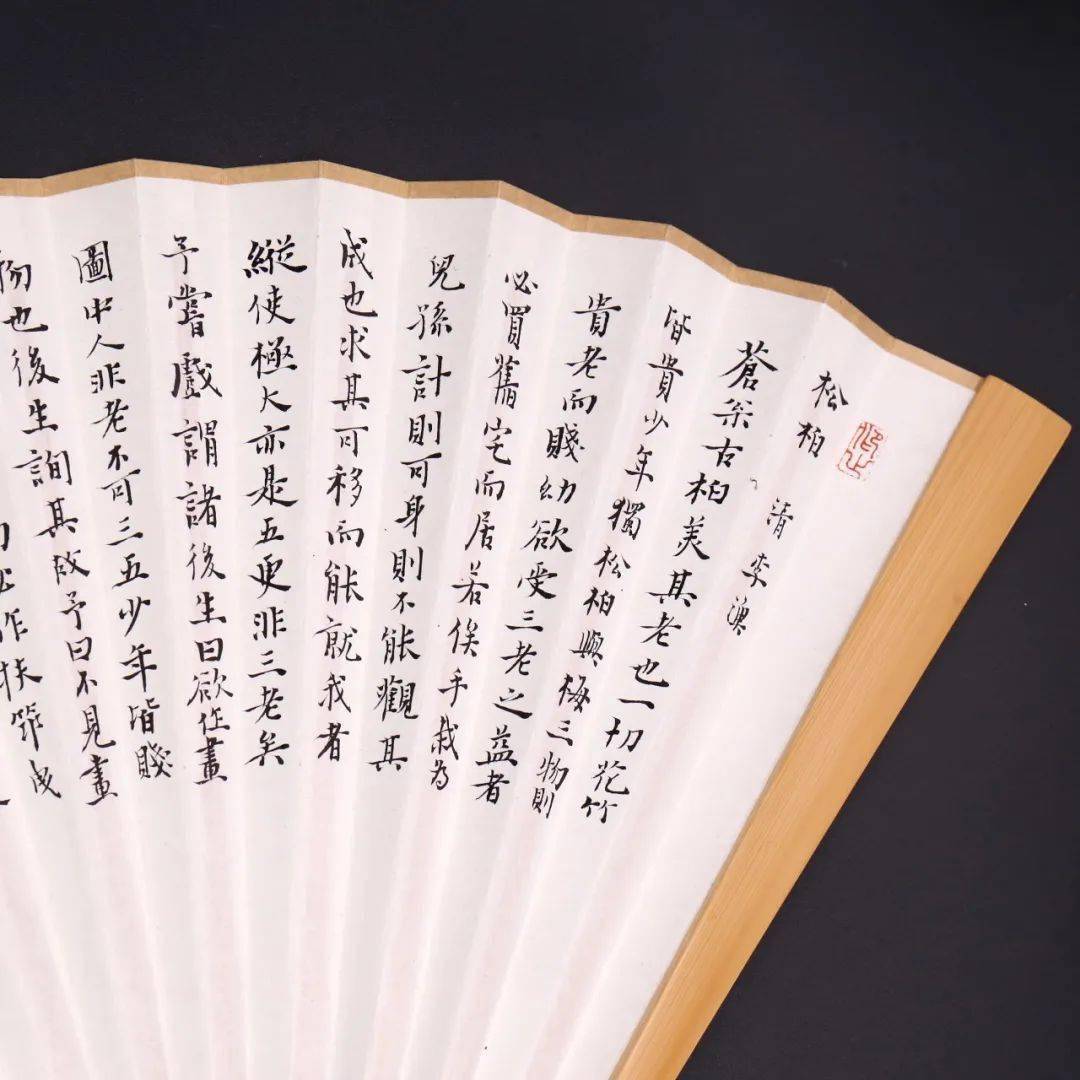 松柏 清 李漁
蒼枀古柏美其老也一切花竹
皆貴少年獨松柏與梅三物則
貴老而賤幼欲受三老之益者
必買舊宅而居若俟手栽為
兒孫計則可身則不能觀其
成也求其可移而能就我者
縱使極大亦是五更非三老矣
予嘗戲謂諸後生曰欲作畫
圖中人非老不可三五少年皆賤
物也後生詢其故予曰不見畫
必作扶筇曳